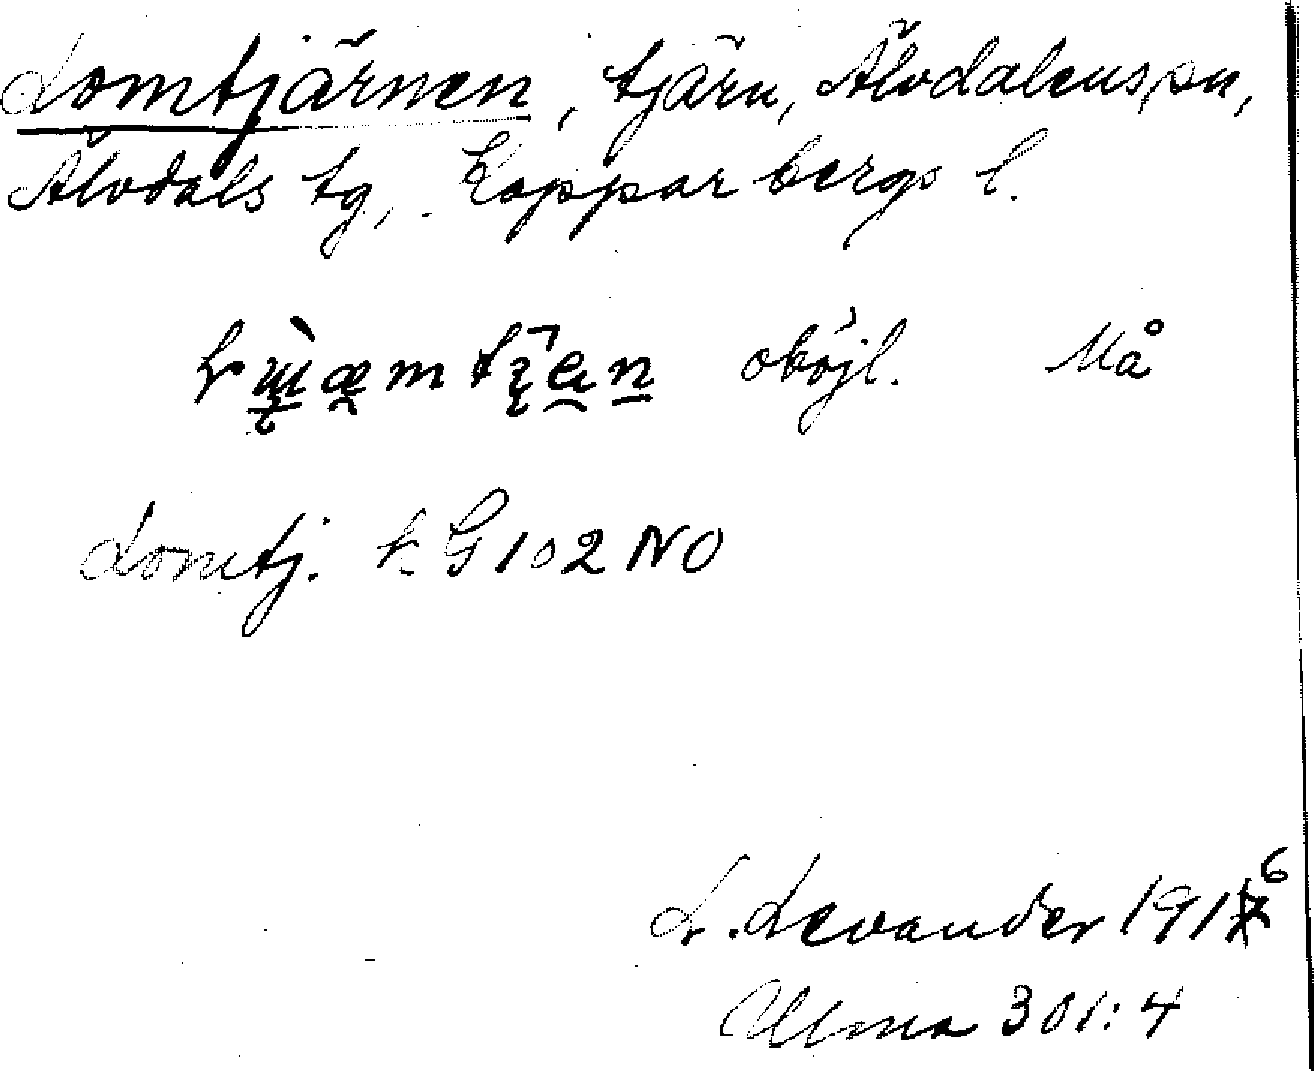 Lomtjärnen, tjärn, Älvdalens sn,
Älvdals tg, Kopparbergs l.
oböjl. Må
Lomtj. k. G 102 NO
L. Levander 1916
Ulma 301:4